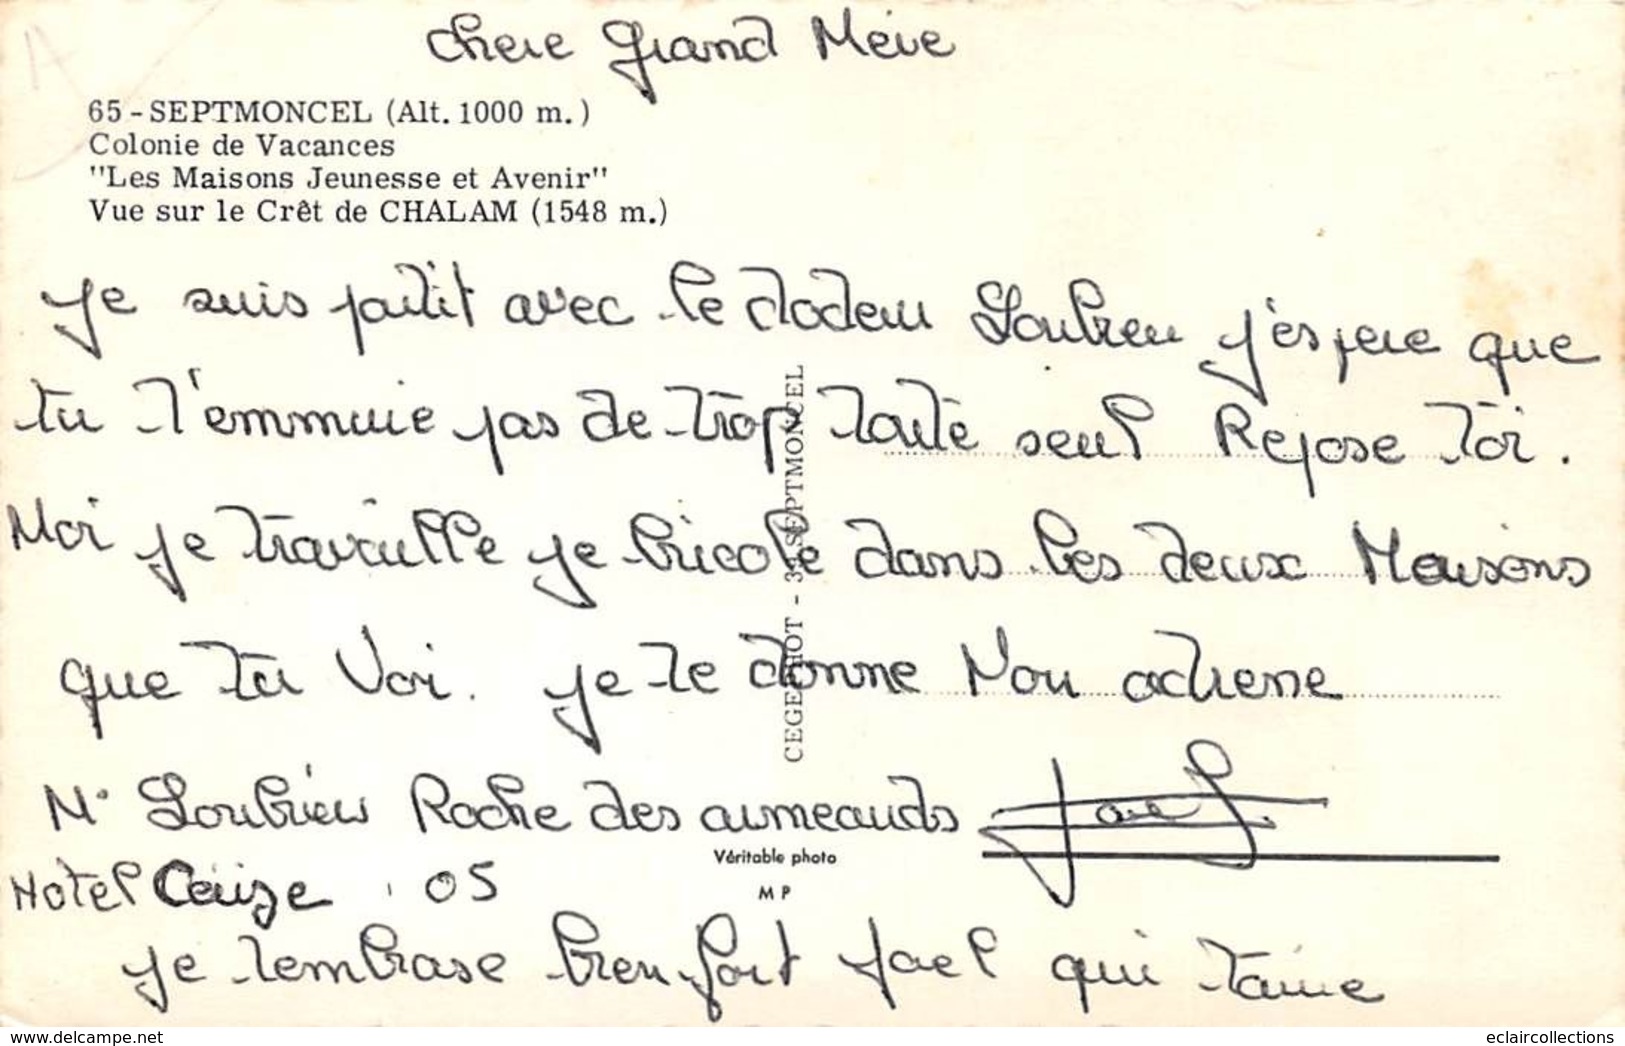 chere Grand Mère
65 - SEPTMONCEL (Alt. 1000 m.)
Colonie de Vacances
"Les Maisons Jeunesse et Avenir"
Vue sur le Crêt de CHALAM (1548 m.)
Je suis partit avec le docteur Soubreu j'espere que
tu t'emmuie pas de trop toute seul Repose toi.
Moi je travaille je bricole dans les deux Maisons
que tu Voi. je te donne Mon adresse
Mr Soubrieu Roche des arnauds Joel
Hotel Ceüze 05
je tembrase bien fort Joel qui taime
CEGEPHOT - 39 SEPTMONCEL
Véritable photo
M P
delcampe.net
eclaircollections